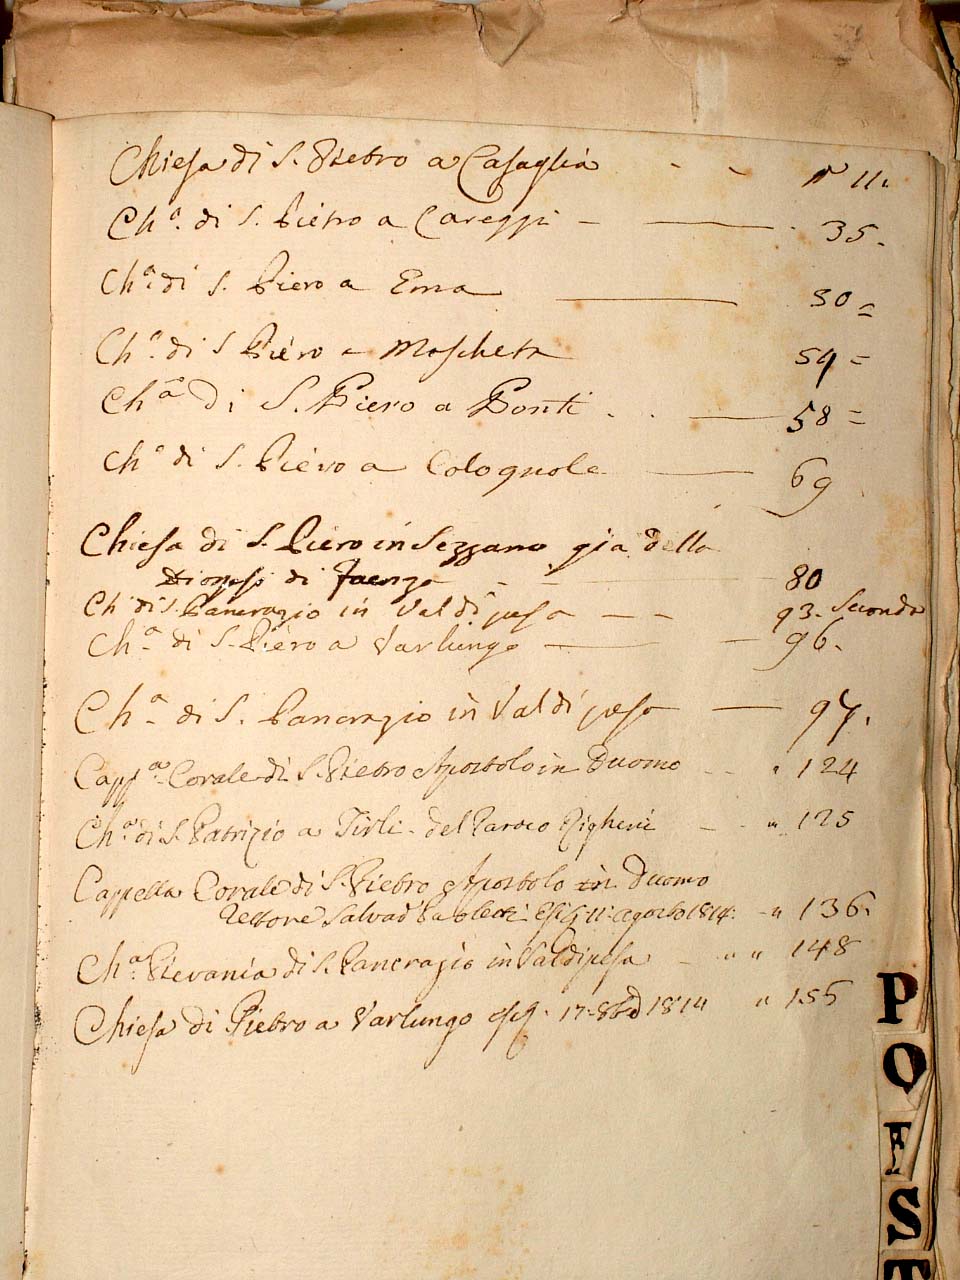 Chiesa di S. Pietro a Casaglia - - N 11.
Ch.ª di S. Pietro a Careggi - 35.
Ch.ª di S. Piero a Ema 50=
Ch.ª di S Piero a Moscheta 54=
Chª di S. Piero a Ponti . . 58=
Chª di S. Piero a Colognole 69
Chiesa di S. Piero in Sezzano gia della
Diogesi di Faenza - - 80
Chª di S. Pancrazio in Val di pesa - - 93. Seconda
Ch.ª di S. Piero a Varlungo - 96.
Ch.ª di S. Pancrazio in Val di pesa 97.
Capp.ª Corale di S. Pietro Apostolo in Duomo - - " 124
Ch.ª di S. Patrizio a Tirli - del Paroco Righini - - " 125
Cappella Corale di S. Pietro Apostolo in Duomo
Rettore Salvad Paoletti 11: agosto 1814. - " 136.
Ch.ª Pievania di S. Pancrazio in Valdipesa - " " 148
Chiesa di Pietro a Varlungo 17. 1814 " 155
P
O
F
S
T